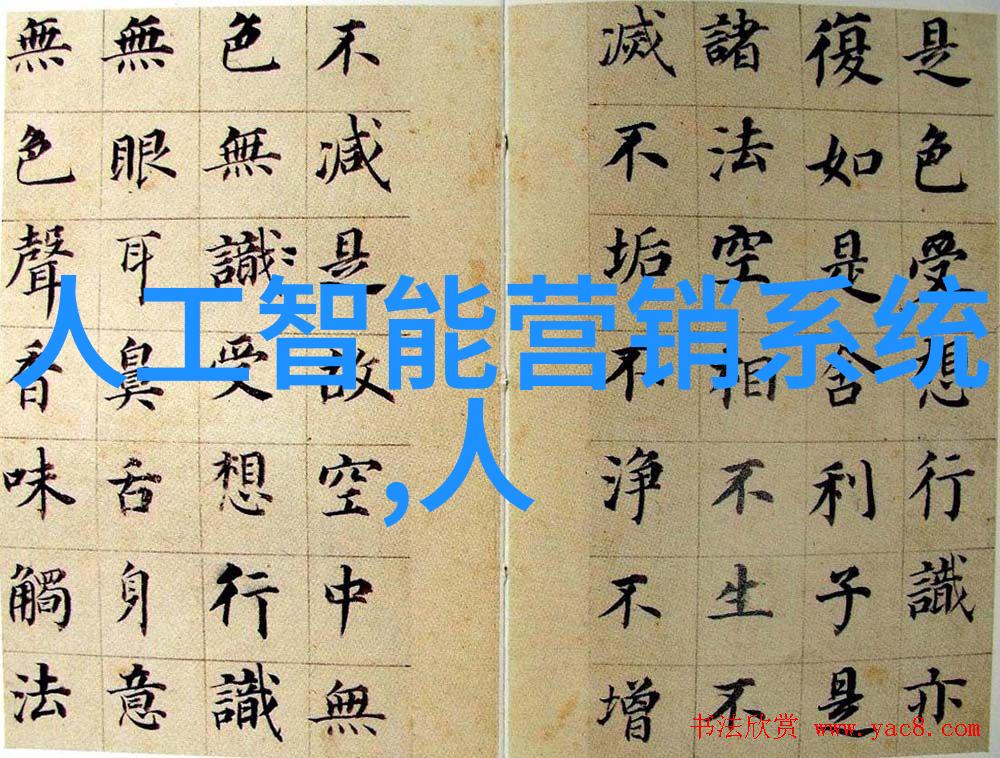 是色受想行識亦
復如是舍利子是
諸法空相不生不
滅不垢不浄不增
不減是故空中無
色無識受想行識
無眼耳鼻舌身意
無色聲香味觸法
人工智能营销系统
,人
书法欣赏 www.yac8.com